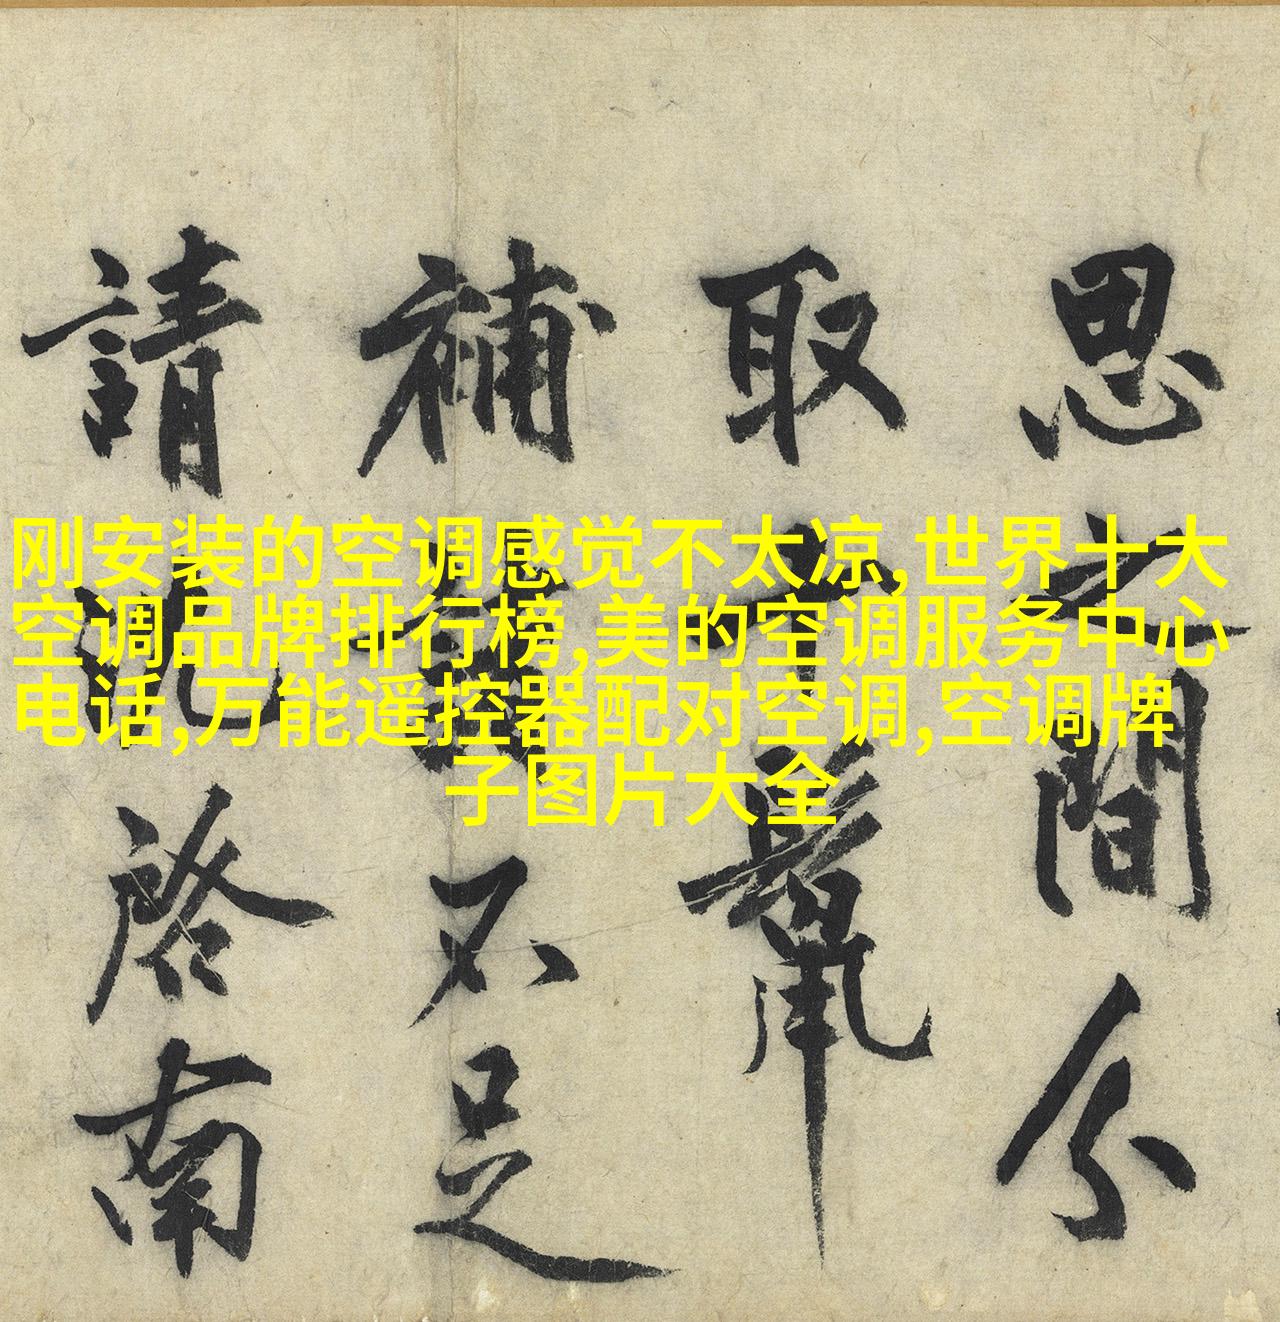 思之間分
取十鬣
補不足
請沈啓南
刚安装的空调感觉不太凉,世界十大
空调品牌排行榜,美的空调服务中心
电话,万能遥控器配对空调,空调牌
子图片大全